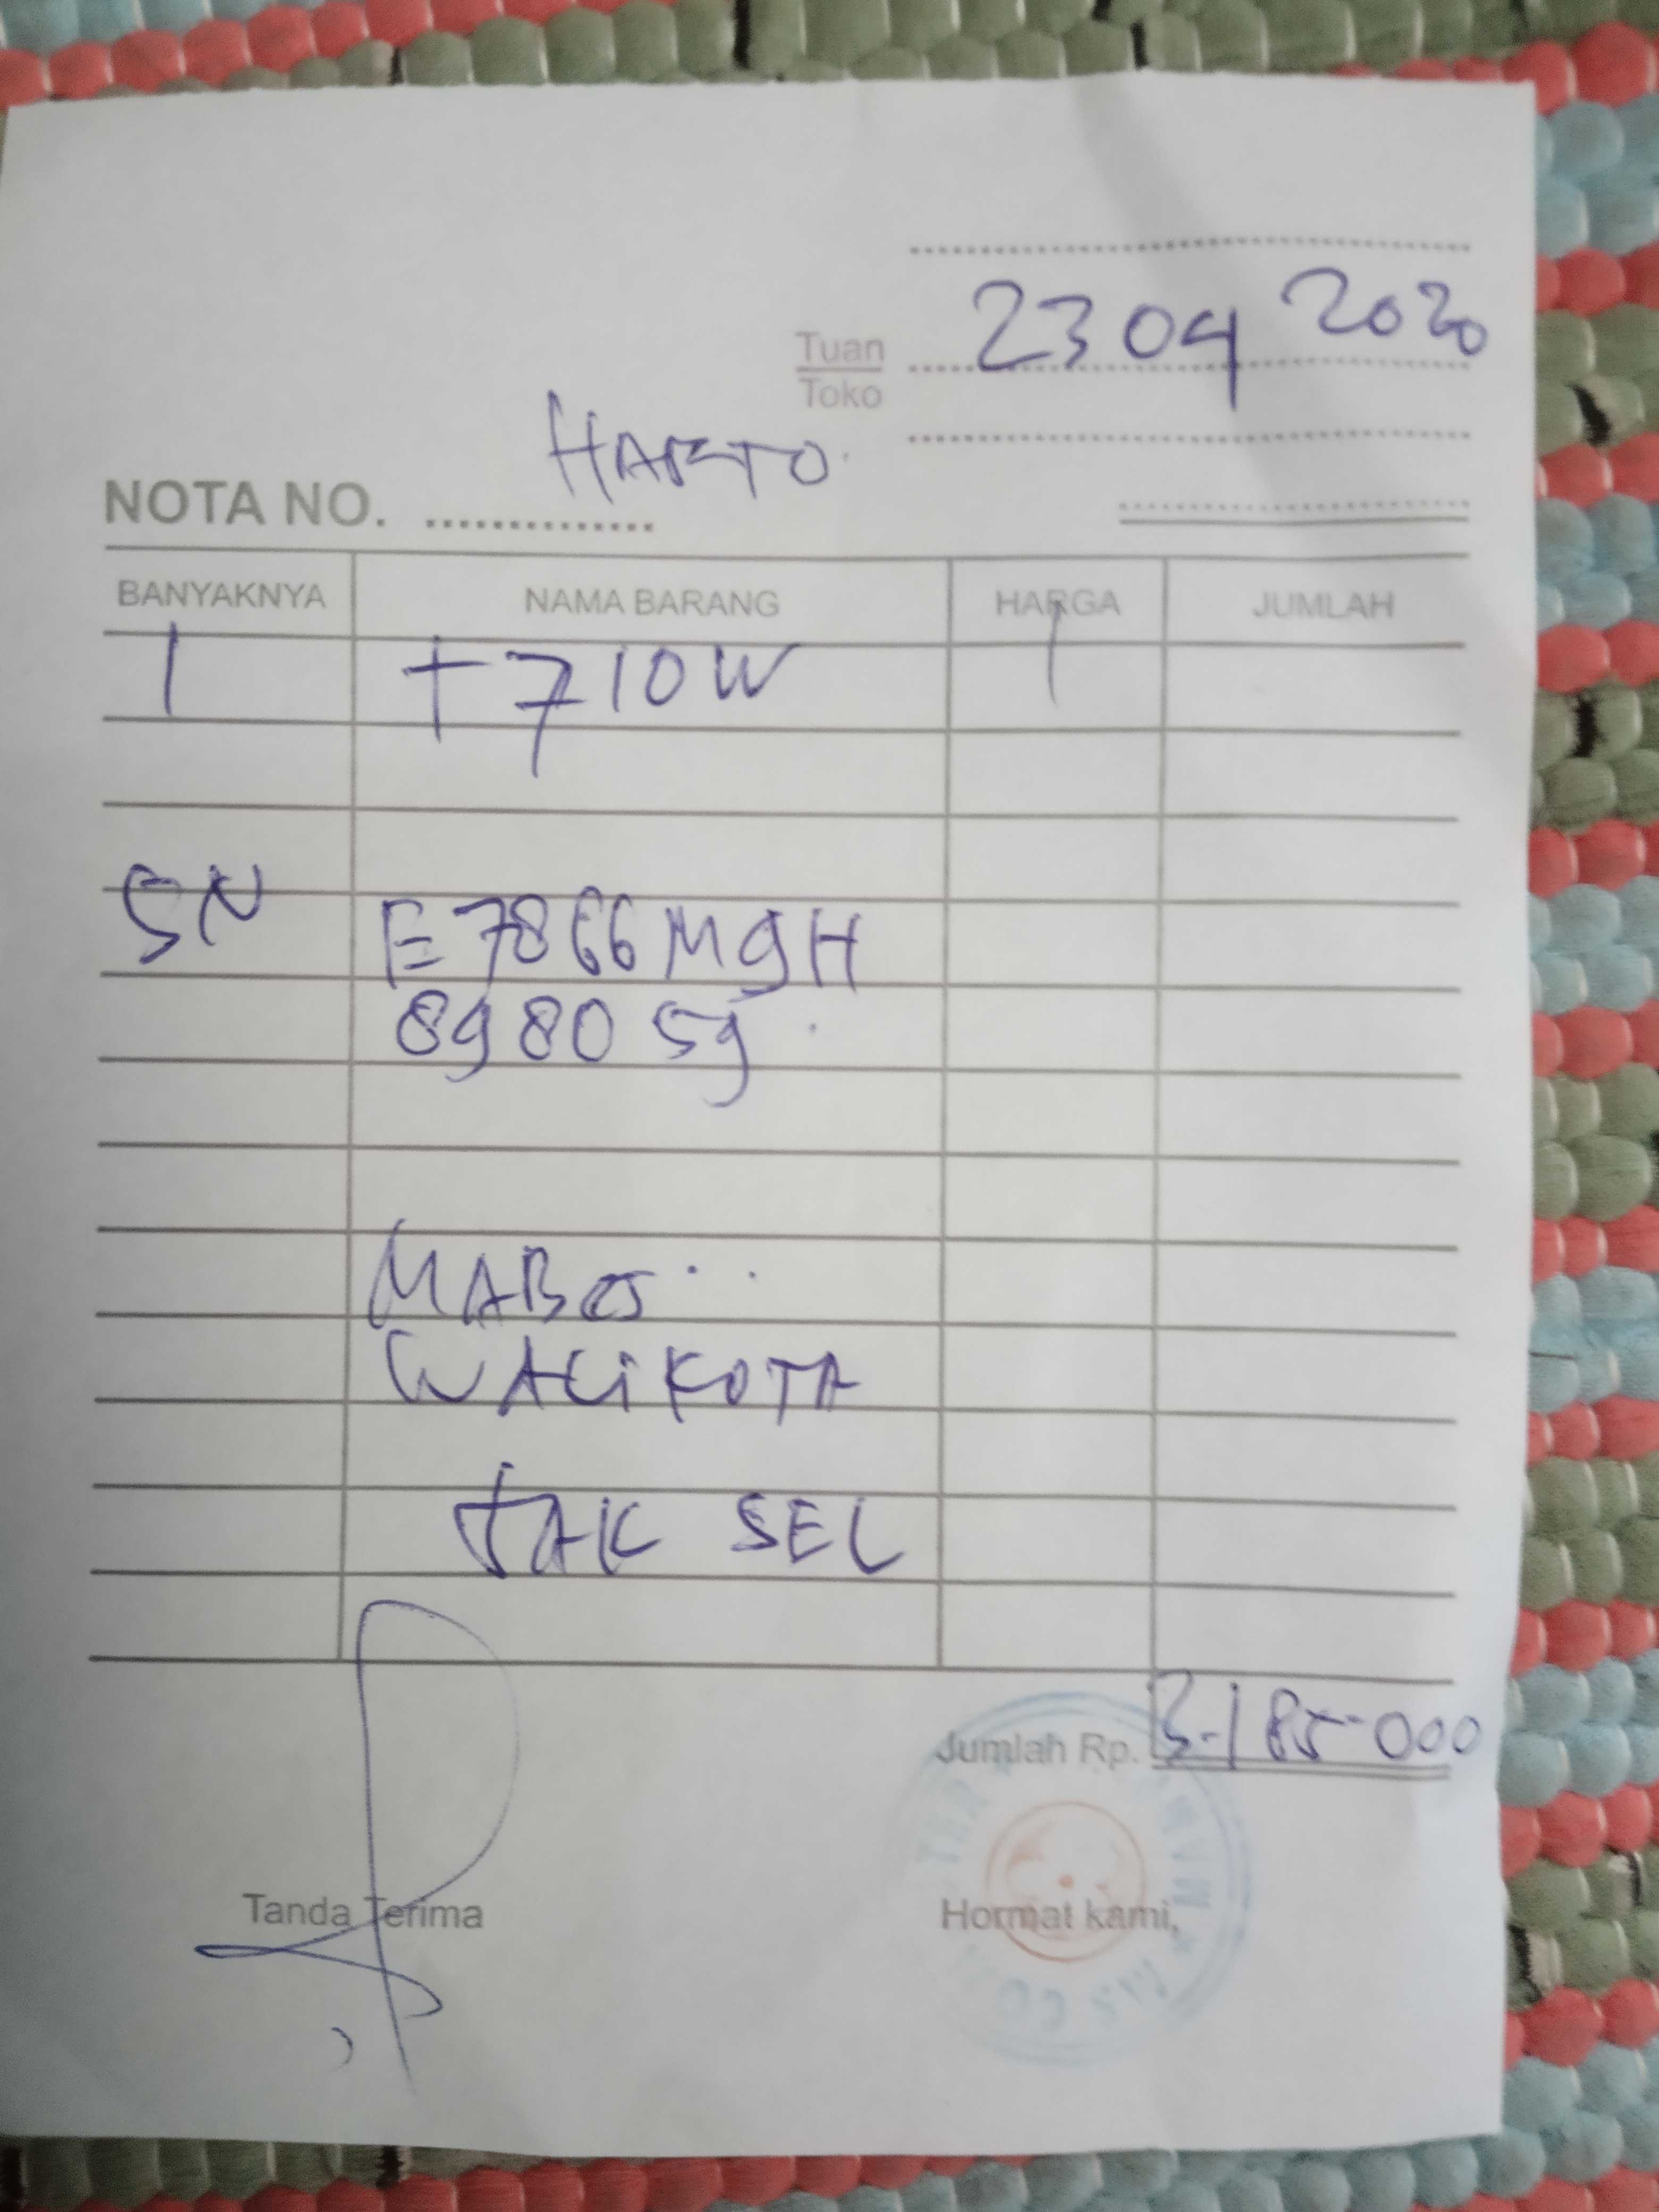 23 04 2020
Tuan
Toko
HARTO
NOTA NO.
BANYAKNYA NAMA BARANG HARGA JUMLAH
1 T710W 1
SN E7866M9H
898059
MABES
WALIKOTA
JAK SEL
Jumlah Rp. 3.185.000
Tanda Terima Hormat kami,